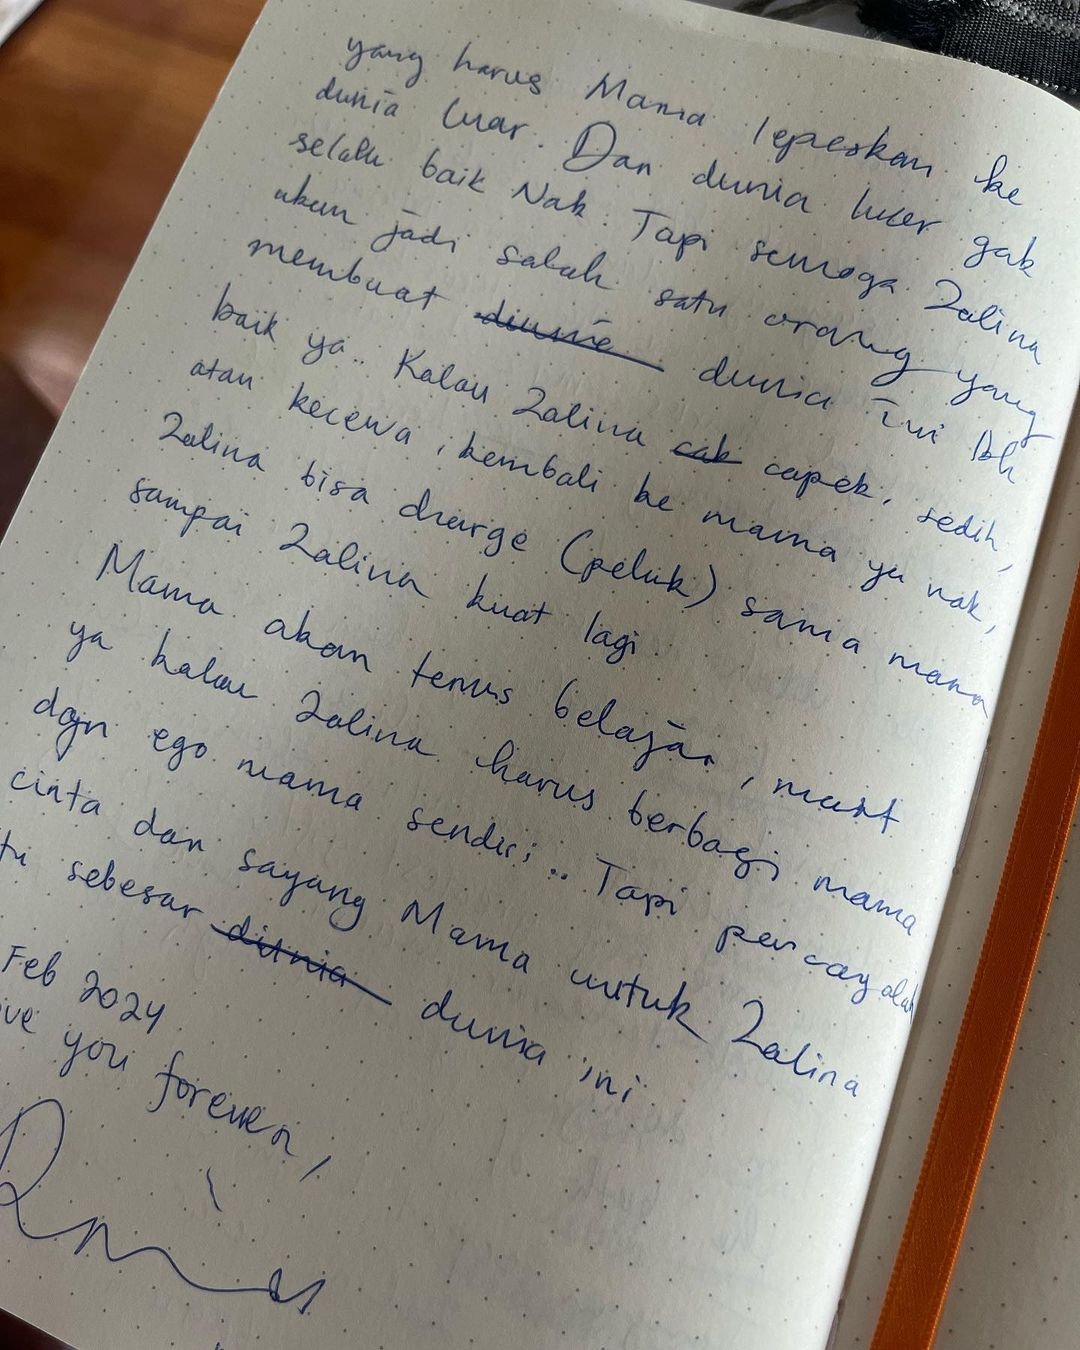 yang harus Mama lepaskan ke
dunia luar. Dan dunia luar gak
selalu baik Nak. Tapi semoga Zalina
akan jadi salah satu orang yang
membuat dunia dunia ini lbh
baik ya.. Kalau Zalina cak capek, sedih,
atau kecewa, kembali ke mama ya nak,
Zalina bisa charge (peluk) sama mama
sampai Zalina kuat lagi.
Mama akan terus belajar, maaf
ya kalau Zalina harus berbagi mama
dgn ego mama sendiri.. Tapi percayalah
cinta dan sayang Mama untuk Zalina
tu sebesar dunia dunia ini
Feb 2024
ve you forever,